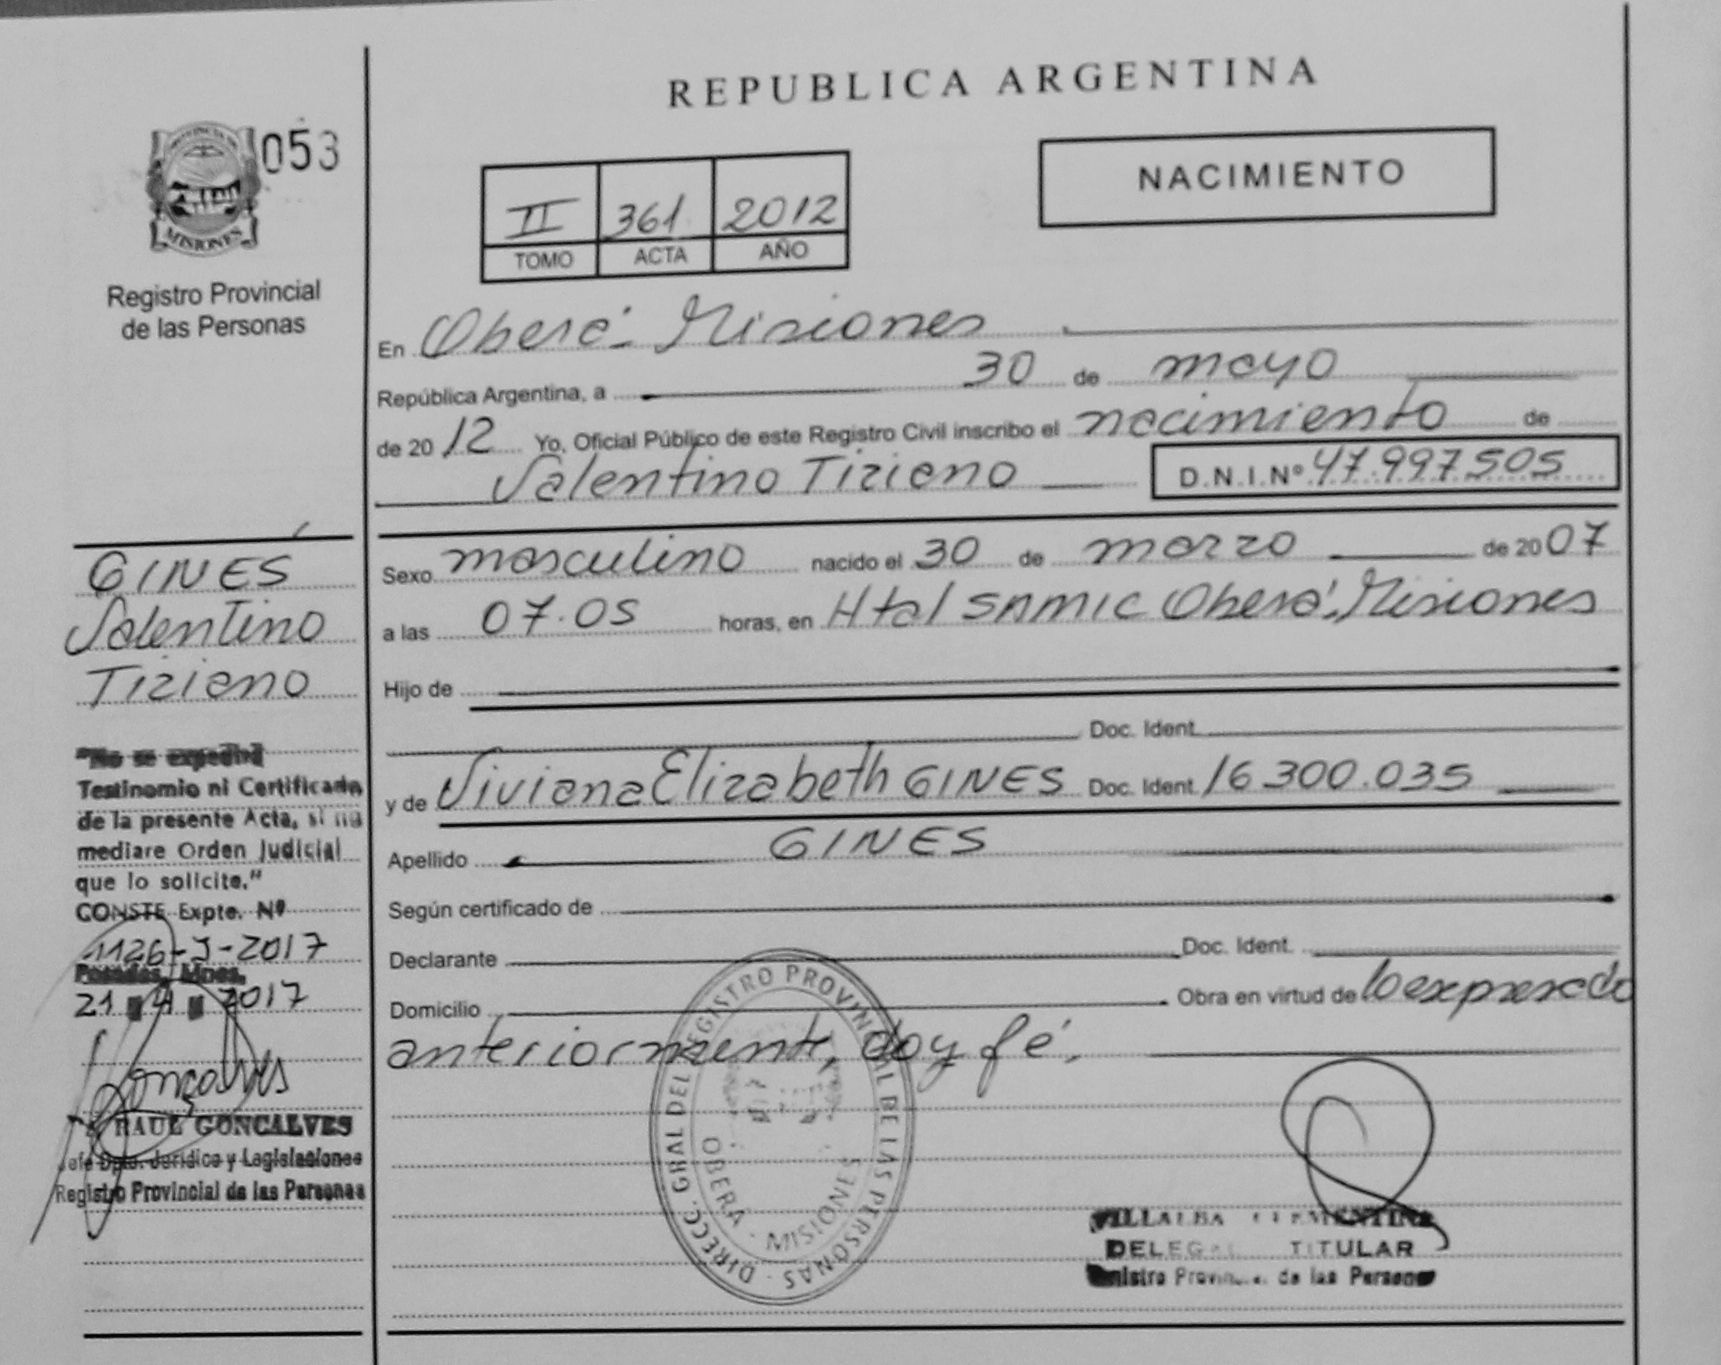 REPUBLICA ARGENTINA
053
MISIONES
Registro Provincial
de las Personas
II 361 2012
TOMO ACTA AÑO
NACIMIENTO
En Oberá - Misiones
República Argentina, a 30 de mayo
de 2012 Yo, Oficial Público de este Registro Civil inscribo el nacimiento de
Valentino Tiziano D.N.I.Nº 47.997.505
Sexo masculino nacido el 30 de marzo de 2007
a las 07.05 horas, en Htal SAMIC Oberá, Misiones
Hijo de
Doc. Ident.
y de Viviana Elizabeth GINES Doc. Ident. 16.300.035
Apellido GINES
Según certificado de
Declarante Doc. Ident.
Domicilio Obra en virtud de lo expresado
anteriormente, doy fé.
GINES
Valentino
Tiziano
"No se expedirá
Testinomio ni Certificado
de la presente Acta, si no
mediare Orden Judicial
que lo solicite."
CONSTE Expte. Nº
1126-J-2017
Posadas, Mnes.
21 4 2017
Goncalves
RAUL GONCALVES
Jefe Dpto. Jurídico y Legislaciones
Registro Provincial de las Personas
DIRECC. GRAL DEL REGISTRO PROVINCIAL DE LAS PERSONAS
OBERÁ - MISIONES
VILLALBA CLEMENTINA
DELEG TITULAR
Registro Provincial de las Personas